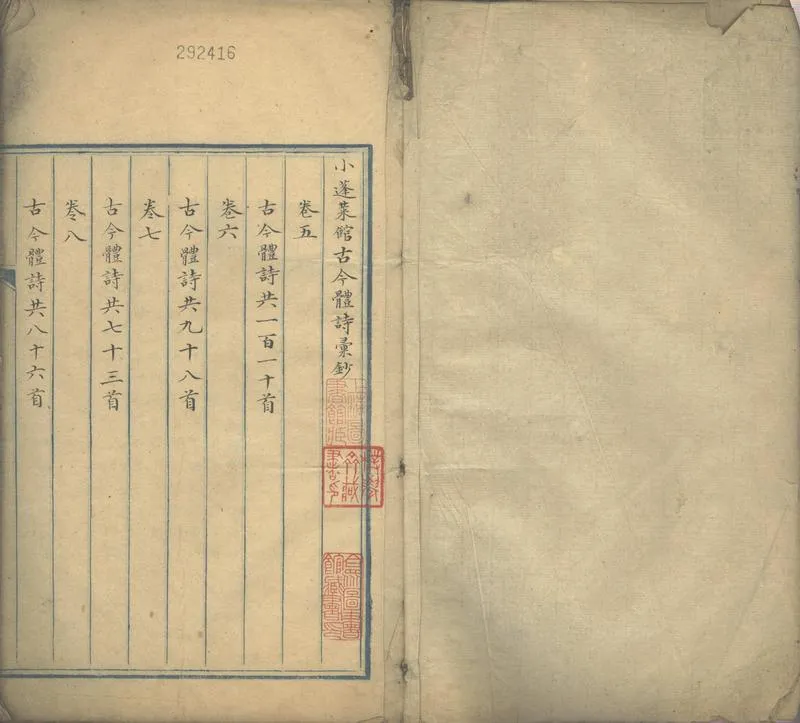 292416
小蓬萊館古今體詩彙鈔
卷五
古今體詩共一百一十首
卷六
古今體詩共九十八首
卷七
古今體詩共七十三首
卷八
古今體詩共八十六首
上海圖
書館藏